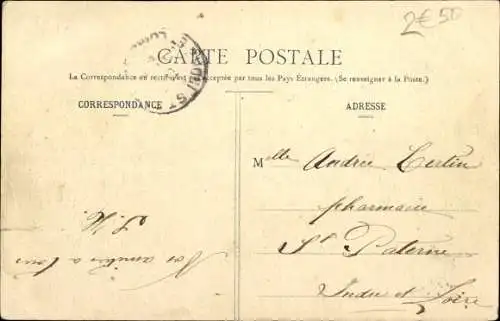 2€50
CARTE POSTALE
La Correspondance au recto n'est pas acceptée par tous les Pays Étrangers. (Se renseigner à la Poste.)
CORRESPONDANCE
ADRESSE
Melle Andrée Certin
pharmacie
St Paterne
Indre et Loire
Nos amitiés a tous